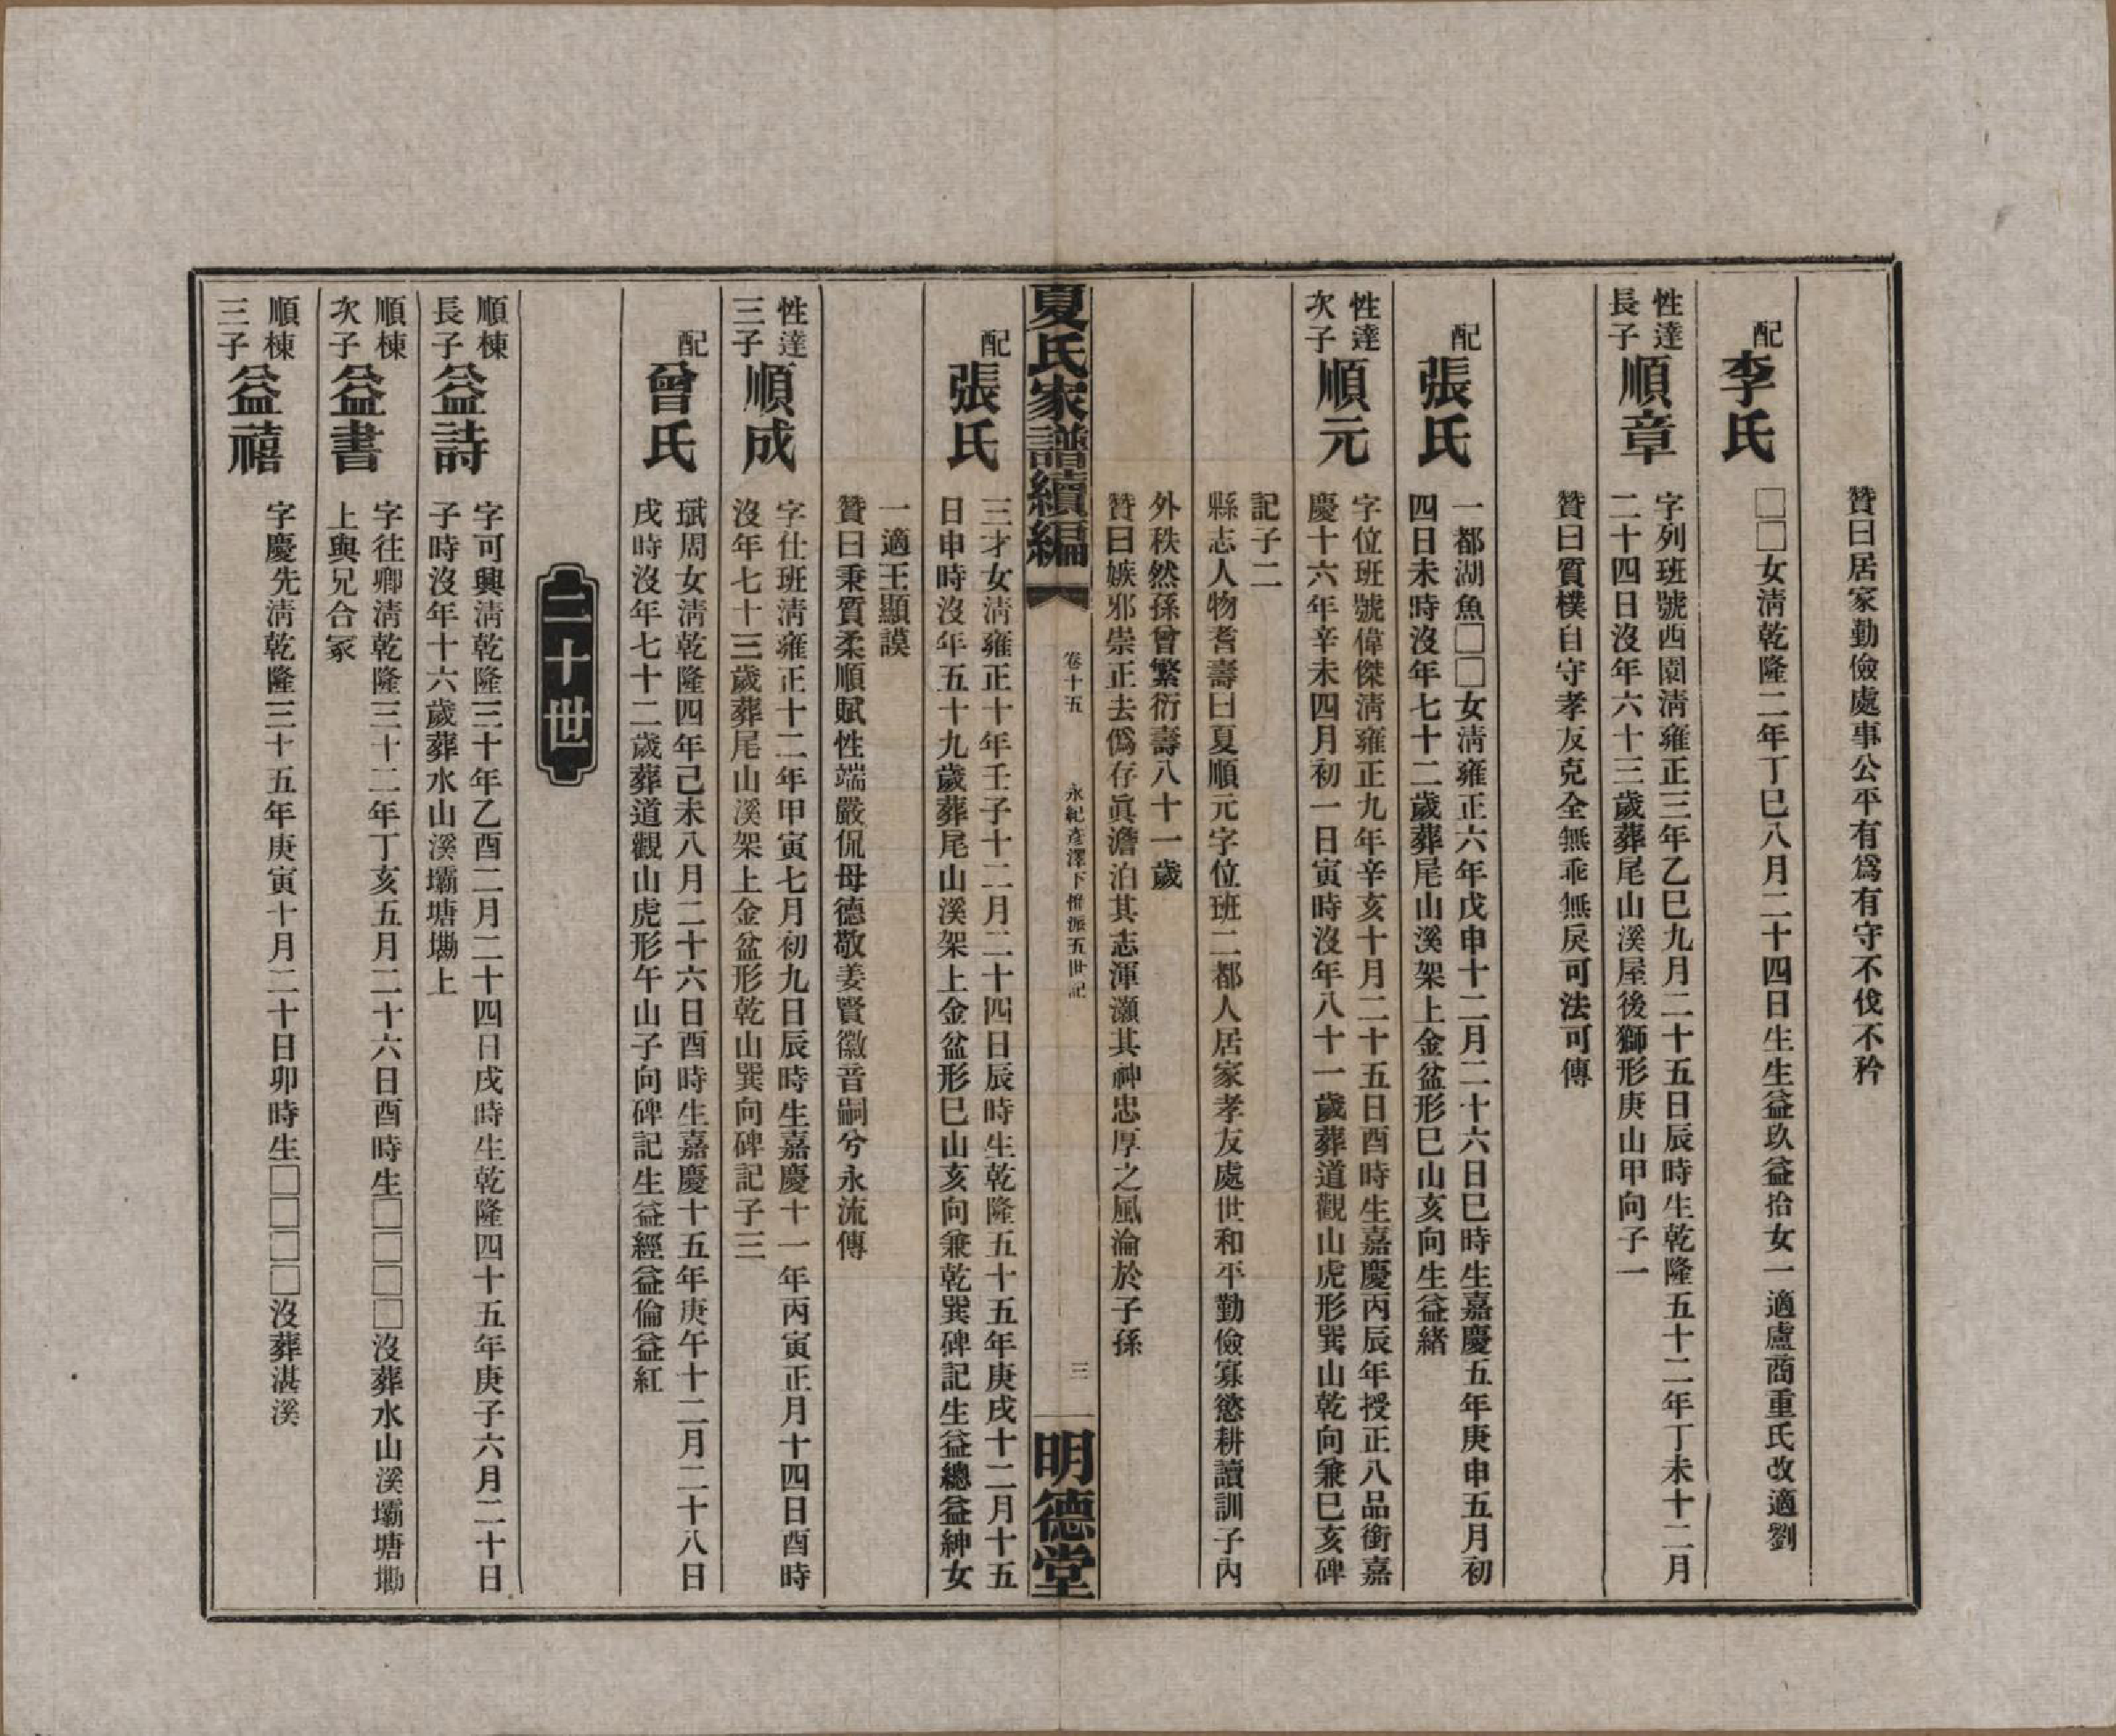 贊曰居家勤儉處事公平有爲有守不伐不矜
配
李氏
□□女淸乾隆二年丁巳八月二十四日生生益玖益拾女一適盧商重氏改適劉
性達
長子
順章
字列班號西園淸雍正三年乙巳九月二十五日辰時生乾隆五十二年丁未十二月
二十四日沒年六十三歲葬尾山溪屋後獅形庚山甲向子一
贊曰質樸自守孝友克全無乖無戾可法可傳
配
張氏
一都湖魚□□女淸雍正六年戊申十二月二十六日巳時生嘉慶五年庚申五月初
四日未時沒年七十二歲葬尾山溪架上金盆形巳山亥向生益緒
性達
次子
順元
字位班號偉傑淸雍正九年辛亥十月二十五日酉時生嘉慶丙辰年授正八品銜嘉
慶十六年辛未四月初一日寅時沒年八十一歲葬道觀山虎形巽山乾向兼巳亥碑
記子二
縣志人物耆壽曰夏順元字位班二都人居家孝友處世和平勤儉寡慾耕讀訓子內
外秩然孫曾繁衍壽八十一歲
贊曰嫉邪崇正去僞存眞澹泊其志渾灝其神忠厚之風淪於子孫
夏氏家譜續編
卷十五
永紀彥澤下惟派五世記
三
明德堂
配
張氏
三才女淸雍正十年壬子十二月二十四日辰時生乾隆五十五年庚戌十二月十五
日申時沒年五十九歲葬尾山溪架上金盆形巳山亥向兼乾巽碑記生益總益紳女
一適王顯謨
贊曰秉質柔順賦性端嚴侃母德敬姜賢徽音嗣兮永流傳
性達
三子
順成
字仕班淸雍正十二年甲寅七月初九日辰時生嘉慶十一年丙寅正月十四日酉時
沒年七十三歲葬尾山溪架上金盆形乾山巽向碑記子三
配
曾氏
珷周女淸乾隆四年己未八月二十六日酉時生嘉慶十五年庚午十二月二十八日
戌時沒年七十二歲葬道觀山虎形午山子向碑記生益經益倫益紅
二十世
順棟
長子
益詩
字可興淸乾隆三十年乙酉二月二十四日戌時生乾隆四十五年庚子六月二十日
子時沒年十六歲葬水山溪壩塘墈上
順棟
次子
益書
字往卿淸乾隆三十二年丁亥五月二十六日酉時生□□□□沒葬水山溪壩塘墈
上與兄合冢
順棟
三子
益禧
字慶先淸乾隆三十五年庚寅十月二十日卯時生□□□□沒葬湛溪